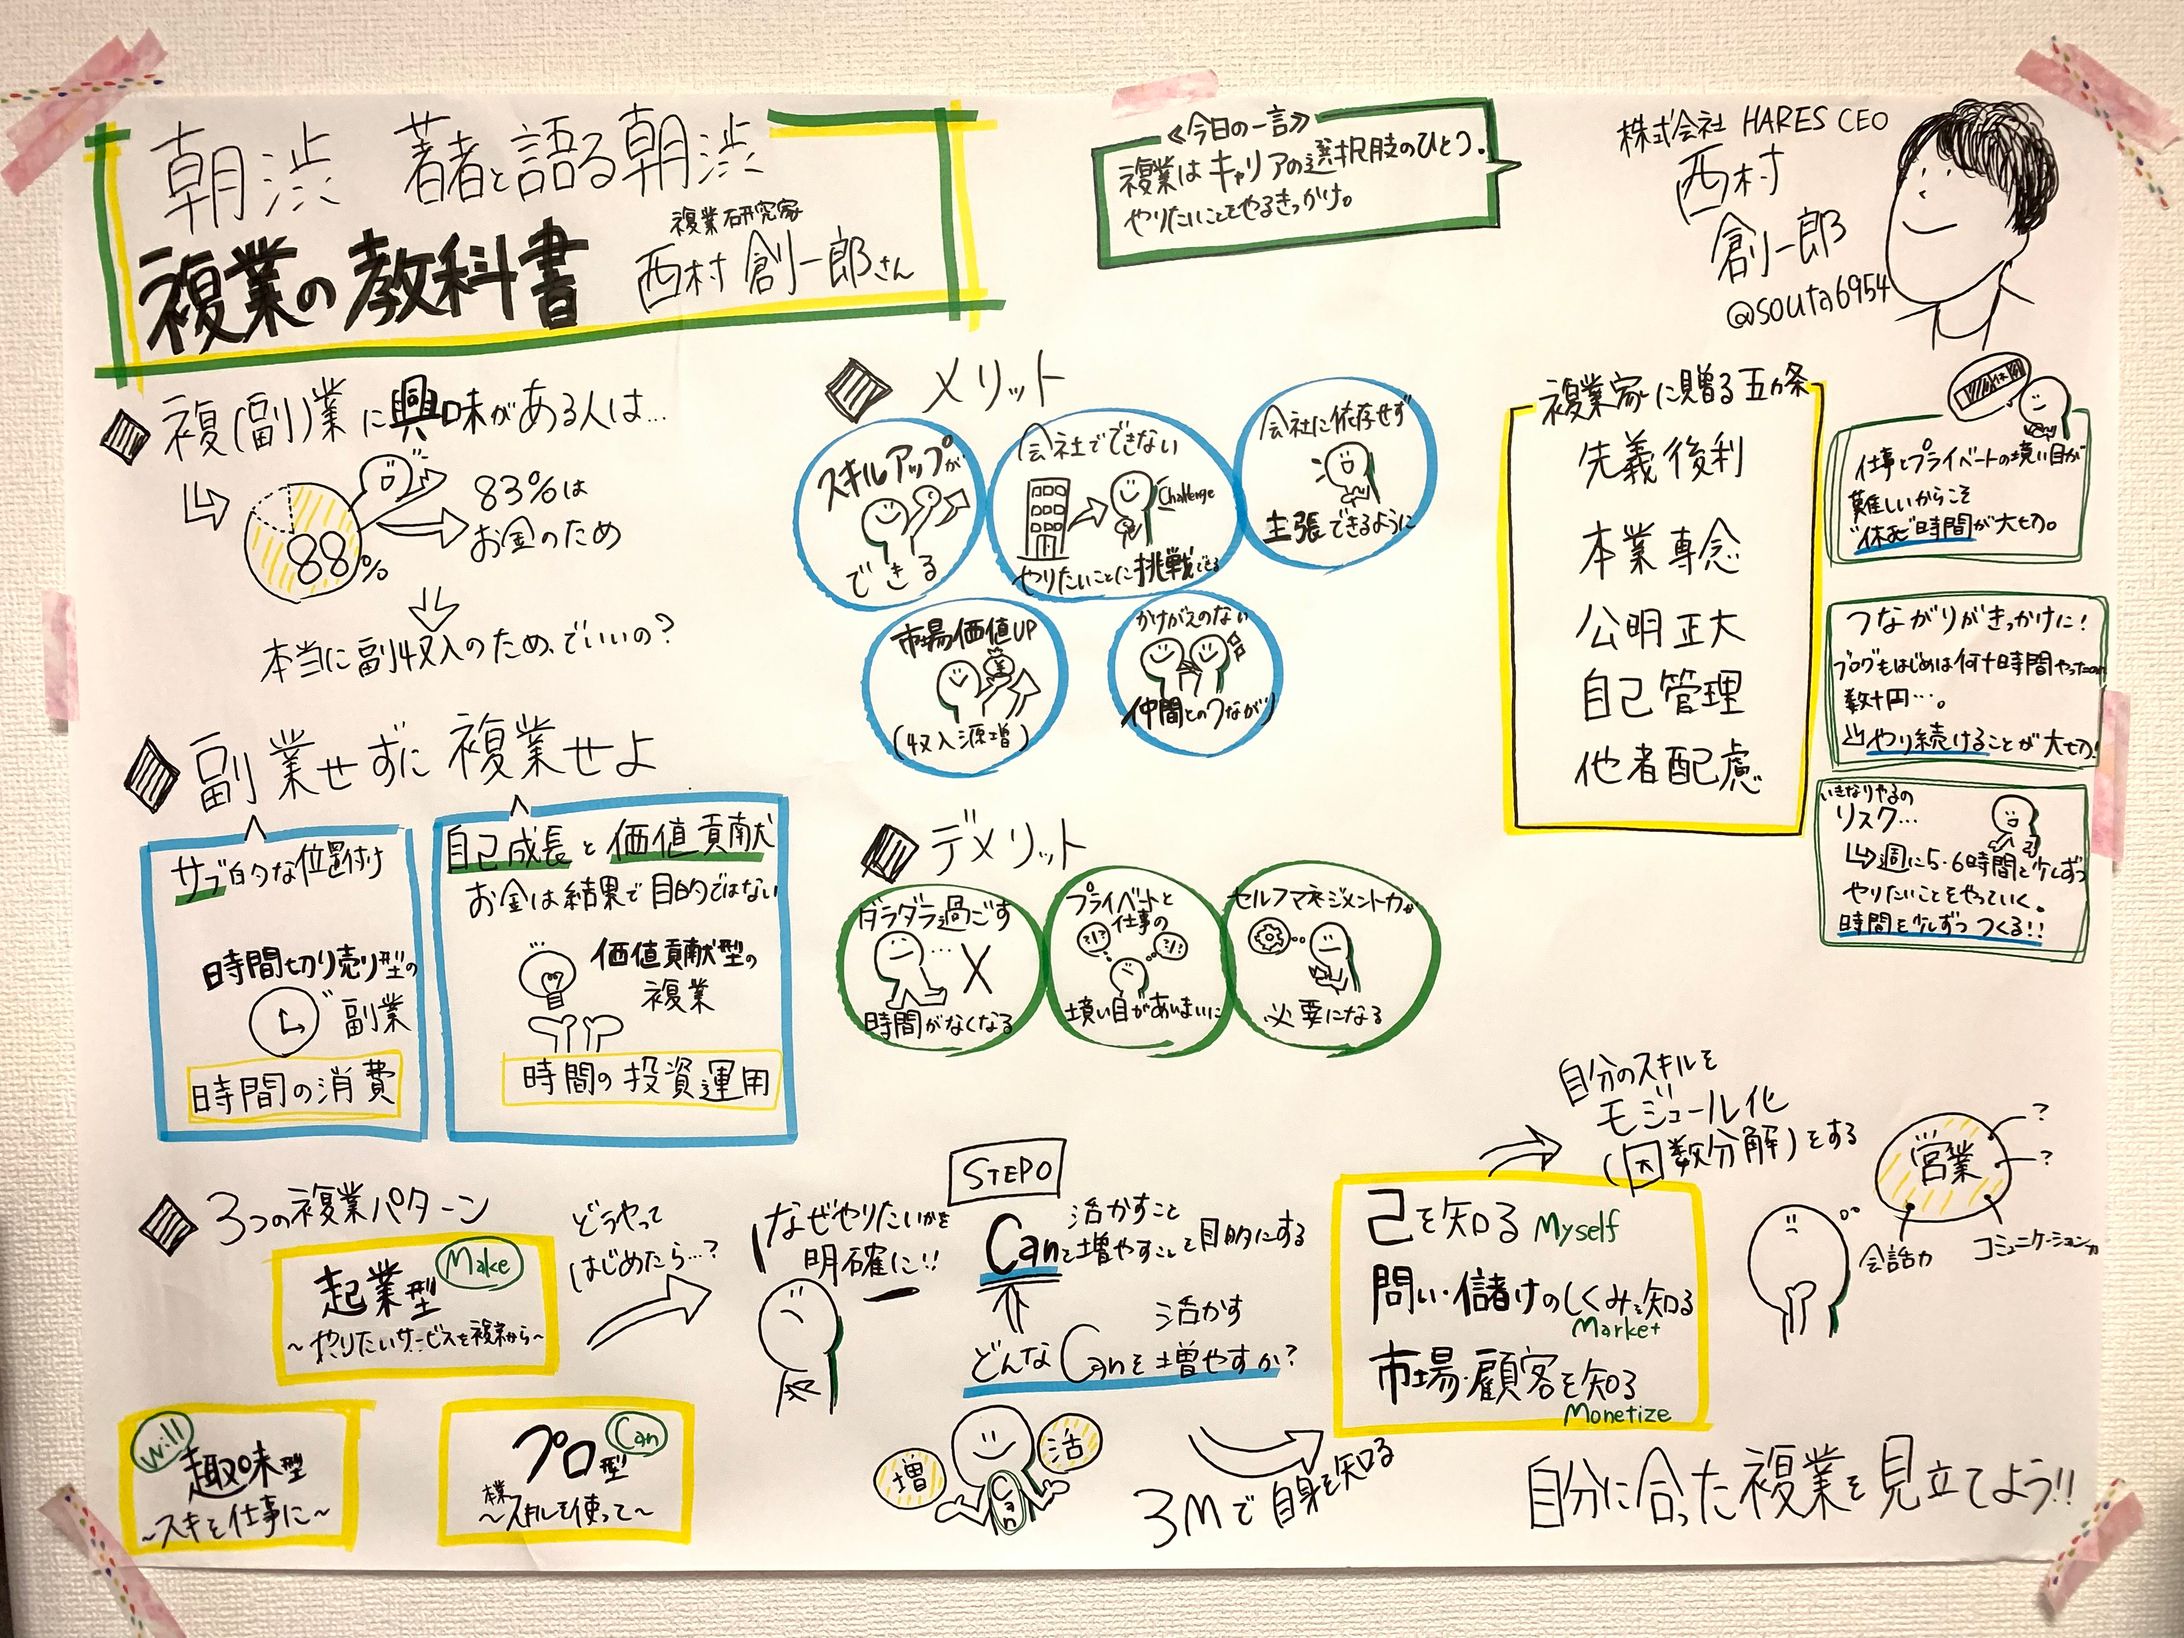 朝渋 著者と語る朝渋
複業の教科書
複業研究家
西村 創一郎さん
《今日の一言》
複業はキャリアの選択肢のひとつ。
やりたいことをやるきっかけ。
株式会社 HARES CEO
西村
創一郎
@souta6954
複(副)業に興味がある人は…
88%
83%は
お金のため
本当に副収入のため、でいいの?
副業せずに複業せよ
サブ的な位置付け
時間切り売り型の
副業
時間の消費
自己成長と価値貢献
お金は結果で目的ではない
価値貢献型の
複業
時間の投資運用
メリット
スキルアップが
できる
会社でできない
Challenge
やりたいことに挑戦できる
会社に依存せず
主張できるように
市場価値UP
(収入源増)
かけがえのない
仲間とのつながり
デメリット
ダラダラ過ごす
時間がなくなる
プライベートと
仕事の
境い目があいまいに
セルフマネジメント力が
必要になる
複業家に贈る五カ条
先義後利
本業専念
公明正大
自己管理
他者配慮
仕事とプライベートの境い目が
難しいからこそ
"休む"時間が大切。
つながりがきっかけに!
ブログもはじめは何十時間やったのに
数十円…。
やり続けることが大切!
いきなりやるの
リスク…
週に5・6時間と少しずつ
やりたいことをやっていく。
時間を少しずつつくる!!
3つの複業パターン
起業型
Make
~やりたいサービスを複業から~
Will
趣味型
~スキを仕事に~
プロ型
Can
本業
~スキルを使って~
どうやって
はじめたら…?
なぜやりたいかを
明確に!!
STEP0
活かすこと
Canを増やすことを目的にする
活かす
どんなCanを増やすか?
増
活
Can
3Mで自身を知る
己を知る Myself
問い・儲けのしくみを知る
Market
市場・顧客を知る
Monetize
自分のスキルを
モジュール化
(因数分解)をする
営業
?
?
会話力
コミュニケーション力
自分に合った複業を見立てよう!!